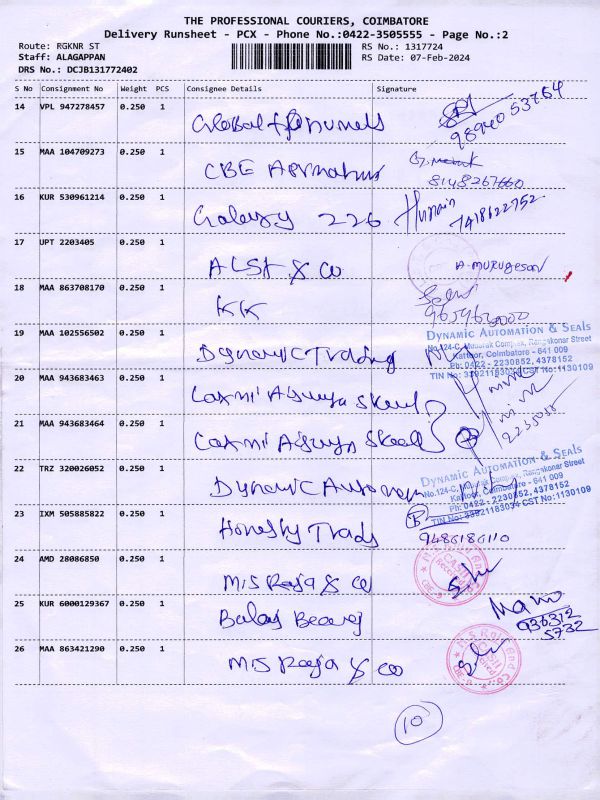 THE PROFESSIONAL COURIERS, COIMBATORE
Delivery Runsheet - PCX - Phone No.:0422-3505555 - Page No.:2
Route: RGKNR ST RS No.: 1317724
Staff: ALAGAPPAN RS Date: 07-Feb-2024
DRS No.: DCJB131772402
S No Consignment No Weight PCS Consignee Details Signature
14 VPL 947278457 0.250 1 Global
15 MAA 104709273 0.250 1 CBE
8148267660
16 KUR 530961214 0.250 1 Galaxy 226 Hussain 7418622752
17 UPT 2203405 0.250 1 & Co A. MURUGESAN
18 MAA 863708170 0.250 1 KK
DYNAMIC AUTOMATION & SEALS
No.124-C, Mubarak Complex, Rangakonar Street
Kattoor, Coimbatore - 641 009
Ph: 0422 - 2230852, 4378152
19 MAA 102556502 0.250 1 Dynamic Trading
20 MAA 943683463 0.250 1 Laxmi Steel
21 MAA 943683464 0.250 1 Laxmi Steel
22 TRZ 320026052 0.250 1 Dynamic
DYNAMIC AUTOMATION & SEALS
No.124-C, Mubarak Complex, Rangakonar Street
Kattoor, Coimbatore - 641 009
Ph: 0422 - 2230852, 4378152
23 IXM 505885822 0.250 1 Honesty
9486186110
24 AMD 28086850 0.250 1 M/S Raja & Co
25 KUR 6000129367 0.250 1 Balaj Mano
936312
5732
26 MAA 863421290 0.250 1 M/S Raja & Co
10